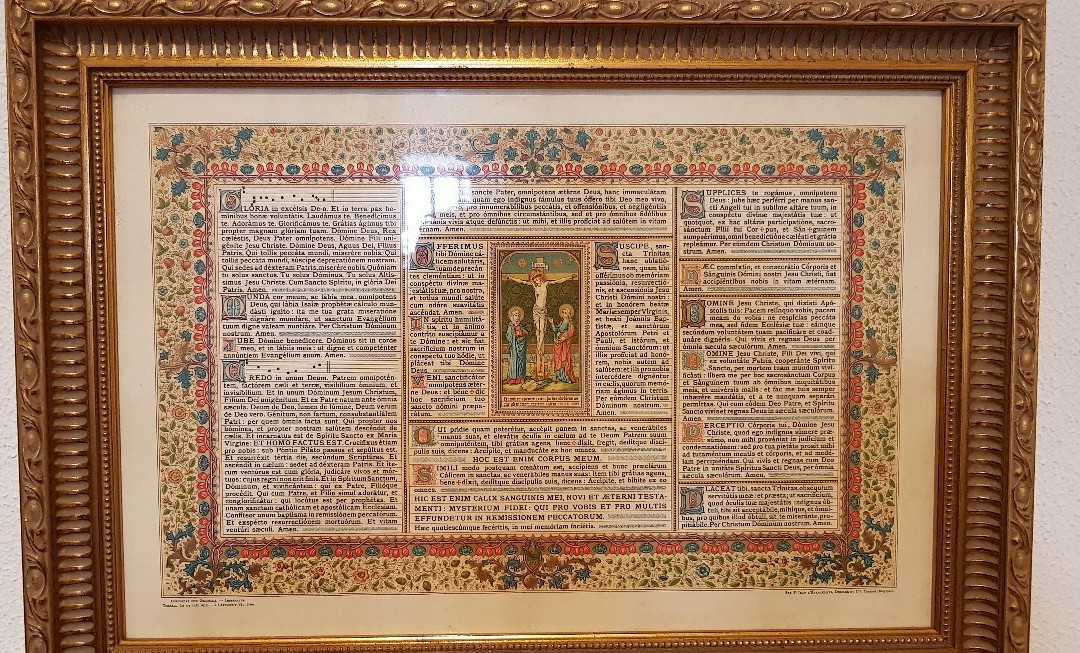 GLÓRIA in excélsis Deo. Et in terra pax ho-
mínibus bonæ voluntátis. Laudámus te. Benedícimus
te. Adorámus te. Glorificámus te. Grátias ágimus tibi
propter magnam glóriam tuam. Dómine Deus, Rex
cæléstis, Deus Pater omnípotens. Dómine Fili uni-
génite Jesu Christe. Dómine Deus, Agnus Dei, Fílius
Patris. Qui tollis peccáta mundi, miserére nobis. Qui
tollis peccáta mundi, súscipe deprecatiónem nostram.
Qui sedes ad déxteram Patris, miserére nobis. Quóniam
tu solus sanctus. Tu solus Dóminus. Tu solus Altís-
simus, Jesu Christe. Cum Sancto Spíritu, in glória Dei
Patris. Amen.
MUNDA cor meum, ac lábia mea, omnípotens
Deus, qui lábia Isaíæ prophétæ cálculo mun-
dásti igníto : ita me tua grata miseratióne
dignáre mundáre, ut sanctum Evangélium
tuum digne váleam nuntiáre. Per Christum Dóminum
nostrum. Amen.
JUBE Dómine benedícere. Dóminus sit in corde
meo, et in lábiis meis : ut digne et competénter
annúntiem Evangélium suum. Amen.
CREDO in unum Deum. Patrem omnipotén-
tem, factórem cæli et terræ, visibílium ómnium, et
invisibílium. Et in unum Dóminum Jesum Christum,
Fílium Dei unigénitum. Et ex Patre natum ante ómnia
sæcula. Deum de Deo, lumen de lúmine, Deum verum
de Deo vero. Génitum, non factum, consubstantiálem
Patri : per quem ómnia facta sunt. Qui propter nos
hómines, et propter nostram salútem descéndit de
cælis. Et incarnátus est de Spíritu Sancto ex María
Vírgine: ET HOMO FACTUS EST. Crucifíxus étiam
pro nobis : sub Póntio Piláto passus et sepúltus est.
Et resurréxit tértia die, secúndum Scriptúras. Et
ascéndit in cælum : sedet ad déxteram Patris. Et íte-
rum ventúrus est cum glória, judicáre vivos et mór-
tuos : cujus regni non erit finis. Et in Spíritum Sanctum,
Dóminum, et vivificántem : qui ex Patre, Filióque
procédit. Qui cum Patre, et Fílio simul adorátur, et
conglorificátur : qui locútus est per prophétas. Et
unam sanctam cathólicam et apostólicam Ecclésiam.
Confíteor unum baptísma in remissiónem peccatórum.
Et exspécto resurrectiónem mortuórum. Et vitam
ventúri sæculi. Amen.
sancte Pater, omnípotens ætérne Deus, hanc immaculátam
quam ego indígnus fámulus tuus óffero tibi Deo meo vivo,
pro innumerabílibus peccátis, et offensiónibus, et negligéntiis
meis, et pro ómnibus circumstántibus, sed et pro ómnibus fidélibus
vivis atque defúnctis : ut mihi, et illis profíciat ad salútem in vitam
ætérnam. Amen.
OFFERIMUS
tibi Dómine cá-
licem salutáris,
tuam deprecán-
tes cleméntiam : ut in
conspéctu divínæ ma-
jestátis tuæ, pro nostra,
et totíus mundi salúte
cum odóre suavitátis
ascéndat. Amen.
IN spíritu humilitá-
tis, et in ánimo
contríto suscipiámur a
te Dómine : et sic fiat
sacrifícium nostrum in
conspéctu tuo hódie, ut
pláceat tibi Dómine
Deus.
VENI, sanctificátor
omnípotens ætér-
ne Deus : et béne✠dic
hoc sacrifícium tuo
sancto nómini præpa-
rátum.
SUSCIPE, san-
cta Trínitas
hanc oblatió-
nem, quam tibi
offérimus ob memóriam
passiónis, resurrectió-
nis, et ascensiónis Jesu
Christi Dómini nostri :
et in honórem beátæ
Maríæ semper Vírginis,
et beáti Joánnis Bap-
tístæ, et sanctórum
Apostolórum Petri et
Pauli, et istórum, et
ómnium Sanctórum: ut
illis profíciat ad honó-
rem, nobis autem ad
salútem : et illi pro nobis
intercédere dignéntur
in cælis, quorum memó-
riam ágimus in terris.
Per eúmdem Christum
Dóminum nostrum.
Amen.
QUI prídie quam paterétur, accépit panem in sanctas, ac venerábiles
manus suas, et elevátis óculis in cælum ad te Deum Patrem suum
omnipoténtem, tibi grátias agens, bene✠díxit, fregit, dedítque discí-
pulis suis, dicens : Accípite, et manducáte ex hoc omnes.
HOC EST ENIM CORPUS MEUM.
SIMILI modo postquam cœnátum est, accípiens et hunc præclárum
Cálicem in sanctas, ac venerábiles manus suas : item tibi grátias agens,
bene✠díxit, dedítque discípulis suis, dicens : Accípite, et bíbite ex eo
omnes.
HIC EST ENIM CALIX SANGUINIS MEI, NOVI ET ÆTERNI TESTA-
MENTI: MYSTERIUM FIDEI: QUI PRO VOBIS ET PRO MULTIS
EFFUNDETUR IN REMISSIONEM PECCATORUM.
Hæc quotiescúmque fecéritis, in mei memóriam faciétis.
SUPPLICES te rogámus, omnípotens
Deus : jube hæc perférri per manus san-
cti Angeli tui in sublíme altáre tuum, in
conspéctu divínæ majestátis tuæ : ut
quotquot, ex hac altáris participatióne, sacro-
sánctum Fílii tui Cor✠pus, et Sán✠guinem
sumpsérimus, omni benedictióne cælésti et grátia
repleámur. Per eúmdem Christum Dóminum no-
strum. Amen.
HÆC commíxtio, et consecrátio Córporis et
Sánguinis Dómini nostri Jesu Christi, fiat
accipiéntibus nobis in vitam ætérnam.
Amen.
DOMINE Jesu Christe, qui dixísti Apó-
stolis tuis: Pacem relínquo vobis, pacem
meam do vobis : ne respícias peccáta
mea, sed fidem Ecclésiæ tuæ : eámque
secúndum voluntátem tuam pacificáre et coad-
unáre dignéris. Qui vivis et regnas Deus per
ómnia sæcula sæculórum. Amen.
DOMINE Jesu Christe, Fili Dei vivi, qui
ex voluntáte Patris, cooperánte Spíritu
Sancto, per mortem tuam mundum vivi-
ficásti : líbera me per hoc sacrosánctum Corpus
et Sánguinem tuum ab ómnibus iniquitátibus
meis, et univérsis malis : et fac me tuis semper
inhærére mandátis, et a te nunquam separári
permíttas. Qui cum eódem Deo Patre, et Spíritu
Sancto vivis et regnas Deus in sæcula sæculórum.
Amen.
PERCEPTIO Córporis tui, Dómine Jesu
Christe, quod ego indígnus súmere præ-
súmo, non mihi provéniat in judícium et
condemnatiónem : sed pro tua pietáte prosit mihi
ad tutaméntum mentis et córporis, et ad medé-
lam percipiéndam. Qui vivis et regnas cum Deo
Patre in unitáte Spíritus Sancti Deus, per ómnia
sæcula sæculórum. Amen.
PLACEAT tibi, sancta Trínitas, obséquium
servitútis meæ : et præsta; ut sacrifícium,
quod óculis tuæ majestátis indígnus ób-
tuli, tibi sit acceptábile, mihíque, et ómni-
bus, pro quibus illud óbtuli, sit, te miseránte, pro-
pitiábile. Per Christum Dóminum nostrum. Amen.